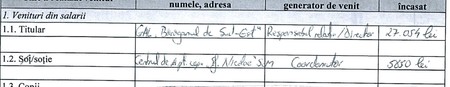 numele, adresa generator de venit încasat
1. Venituri din salarii
1.1. Titular GAL "Bărăganul de Sud-Est" Responsabil /Director 27.054 lei
1.2. Soț/soție Centrul de "Sf. Nicolae" SM Coordonator 5650 lei
1.3. Copii